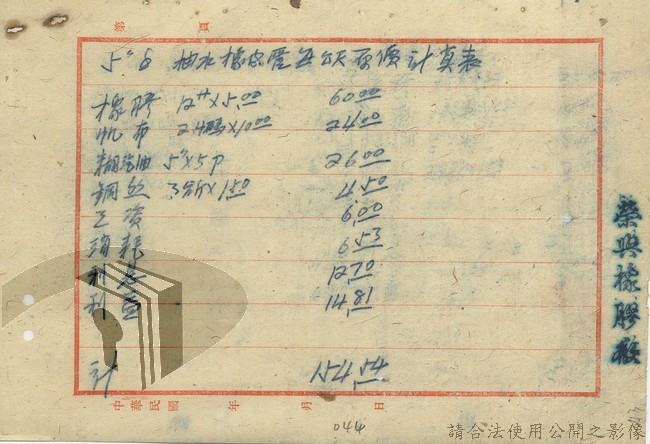 第 頁
5"6 抽水橡皮管每呎原價計算表
橡膠 12#×5.00 60.00
帆布 2.4碼×10.00 24.00
糊汽油 5"×5P 26.00
鋼丝 3斤×1.50 4.50
工资 6.00
消耗 6.53
利息 12.70
利益 14.81
計 154.54
中華民國 年 月 日
044
榮興橡膠廠
請合法使用公開之影像